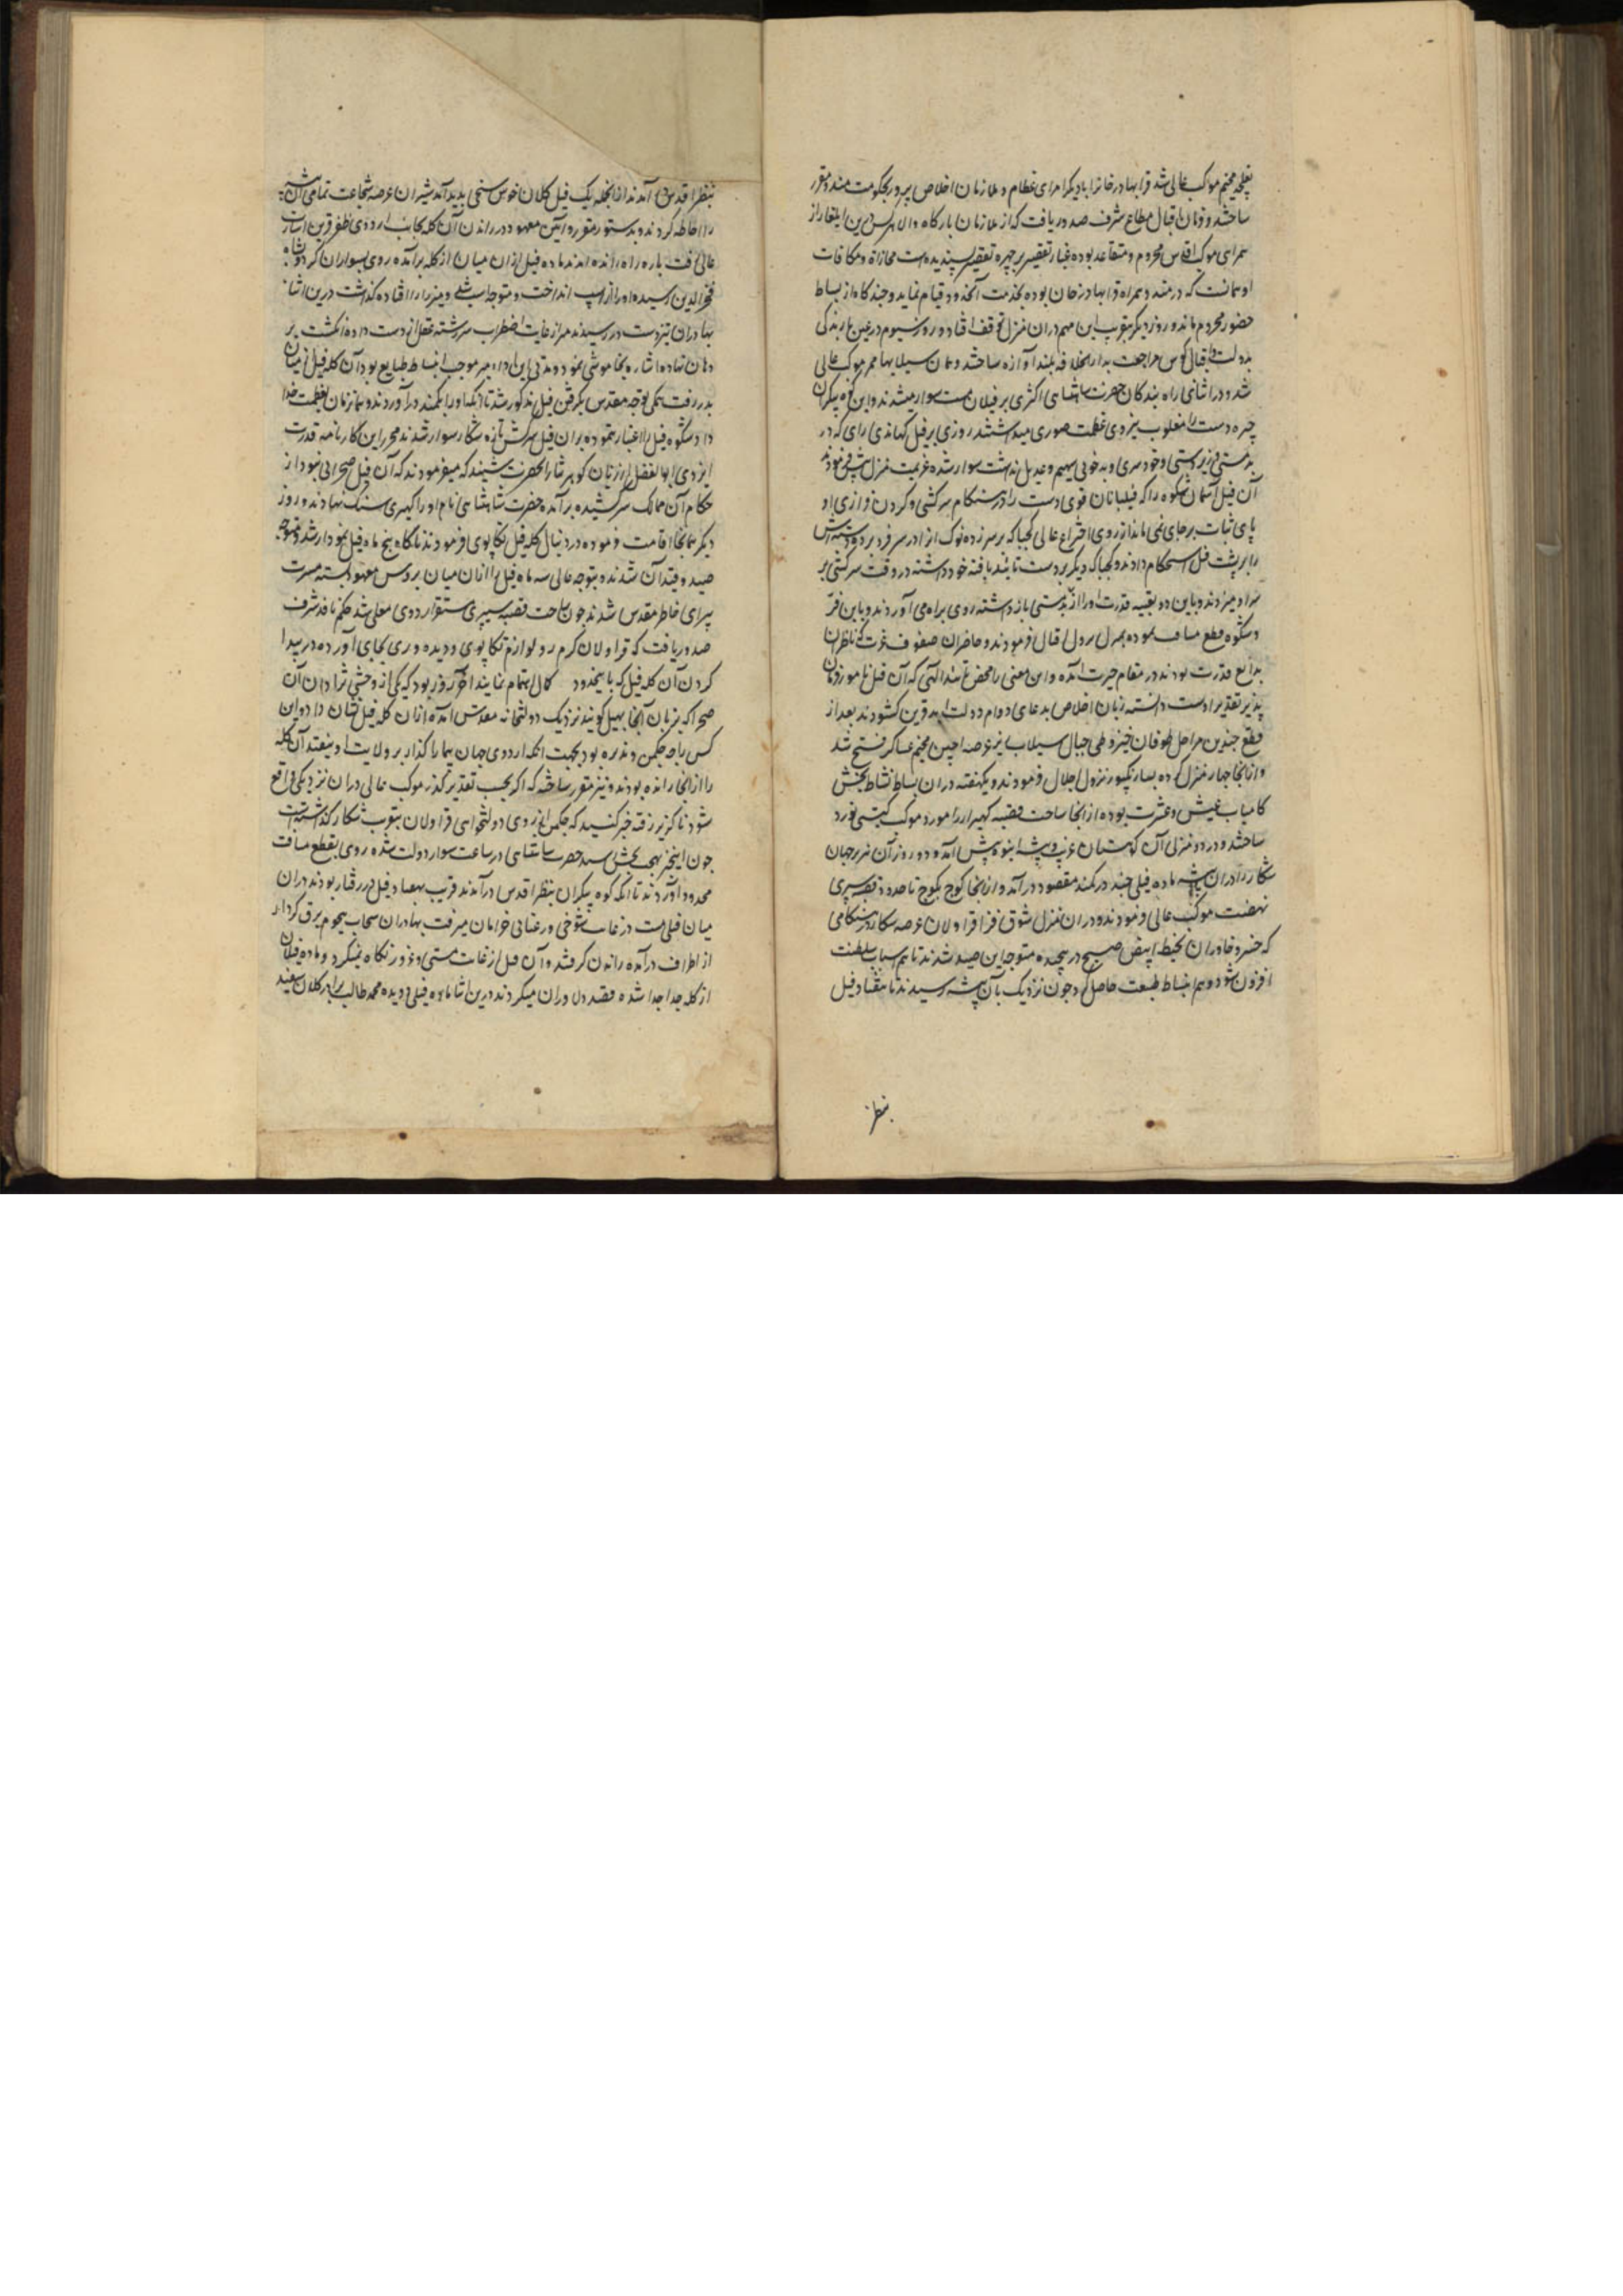 مخیم موکب عالی شد قرا بهادر خانرا با دیگر امرای عظام و ملازمان اخلاص پرور بحکومت مندو مقرر
ساختند و فرمان اقبال مطاع شرف صدور یافت که از ملازمان بارگاه والا هرکس درین ایلغار از
همراهی موکب اقدس محروم و متقاعد بوده غبار تقصیر بر چهره تقصیر پسندیده است مجازاة و مکافات
او همانست که در مندو همراه قرا بهادر خان بوده بخدمت آنحدود قیام نماید و چندگاه از بساط
حضور محروم ماند و روز دیگر بتقریب این مهم دران منزل توقف افتاد و روز سیوم در عین بارندگی
بدولت و اقبال کوس مراجعت بدار الخلافه بلند آوازه ساختند و همان سیلابها ممر موکب عالی
شد و در اثنای راه بندگان حضرت شاهنشاهی اکثری بر فیلان مست سوار میشدند و این کوه پیکران
چیره دست را مغلوب نیروی عظمت صوری میداشتند روزی بر فیل کهاندی رای که در
بدمستی و زبردستی و خودسری و بدخویی سهیم و عدیل نداشت سوار شده عزیمت منزل پیش فرمودند
آن فیل آسمان شکوه را که فیلبانان قوی دست را در هنگام سرکشی و گردن فرازی او
پای ثبات بر جای نمی ماند از روی اختراع عالی کجباکه بر سر زده نوک از ا در سر فرو برد و دسته اش
را بر پشت فیل استحکام دادند و کجباکه دیگر بر دست تائید یافته خود داشته در وقت سرکشی بر
سر او میزدند و باین دو تعبیه قدرت او را از بدمستی باز داشته روی براه می آوردند و باین فر
و شکوه قطع مسافت نموده بمنزل نزول اقبال فرمودند و حاضران صفوف عزت که ناظران
بدائع قدرت بودند در مقام حیرت آمده و این معنی را محض تائید الهی که آن فیل نامور فرمان
پذیر تقدیر اوست دانسته زبان اخلاص بدعای دوام دولت ابد قرین گشودند بعد از
قطع چندین مراحل طوفان خیز و طی جبال سیلاب ریز عرصه اجین مخیم عساکر فتح شد
و از انجا چهار منزل کرده بسارنگپور نزول اجلال فرمودند و یکهفته دران بساط نشاط بخش
کامیاب عیش و عشرت بوده از انجا ساحت قصبه کهیرار را مورد موکب گیتی نورد
ساختند و در دو منزلی آن کوهستان غریب و بیشه انبوه پیش آمد و دو روز آن نهر جهان
شکار را دران بیشه ماده فیلی چند در کمند مقصود در آمد و از انجا کوچ بکوچ تا حدود قصبه سیپری
نهضت موکب عالی فرمودند و دران منزل شوق افزا قراولان عرصه شکار در هنگامی
که خسرو خاوران بخیط ابیض صبح در پیچیده متوجه این صید شدند تا هم اسباب سلطنت
افزون شود و هم انبساط طبیعت حاصل گردد چون نزدیک بآن بیشه رسیدند تا هفتاد فیل
بنظر
بنظر اقدس در آمدند از انجمله یک فیل کلان خوش سنجی پدید آمد شیران عرصه شجاعت تمامی آن بیشه
را احاطه کردند و بدستور مقرر و آئین معهود در راندن آن گله بجانب اردوی ظفر قرین اشارت
عالی یافت پاره راه رانده آمدند ماده فیل ازان میان از گله برآمده روی بسواران کرد و بشاه
فخرالدین رسیده او را از اسپ انداخت و متوجه اسپ شد و میرزا را افتاده گذاشت درین اثنا
بهادران تیزدست در رسیدند میر از غایت اضطراب سررشته عقل از دست داده انگشت بر
دهان نهاده اشاره بخاموشی نمود و مدتی این ادای میر موجب انبساط طبایع بود آن گله فیل از میان
بدر رفت همگی توجه مقدس بگرفتن فیل مذکور شد تا آنکه او را بکمند در آوردند و همانزمان بعظمت خدا
داد شکوه فیل را اعتبار نموده بران فیل سرکش تازه شکار سوار شدند محرر این کارنامه قدرت
ایزدی ابوالفضل از زبان گوهر نثار آنحضرت شنیده که میفرمودند که آن فیل صحرایی نبود از
حکام آن ممالک سرکشیده برآمده حضرت شاهنشاهی نام او را گهری سنگ نهادند و روز
دیگر همانجا اقامت فرموده در دنبال گله فیل تکاپوی فرمودند ناگاه پنج ماده فیل نمودار شد و متوجه
صید و قید آن شدند و بتوجه عالی سه ماده فیل را ازان میان بروش معهود بسته مسرت
پیرای خاطر مقدس شدند چون ساحت قصبه سیپری مستقر اردوی معلی شد حکم نافذ شرف
صدور یافت که قراولان گرم رو لوازم تکاپوی و دیده وری بجای آورده در پیدا
کردن آن گله فیل که باینحدود کمال اهتمام نمایند آخر روز بود که یکی از وحشی نژادان آن
صحرا که بزبان آنجا بهیل گویند نزدیک دولتخانه مقدس آمده ازان گله فیل نشان داد و این
کس راجه جکمن دندیره بود بجهت آنکه اردوی جهان پیما را گذار بر ولایت او نیفتد آن گله
را از انجا رانده بودند و نیز مقرر ساخته که اگر بحسب تقدیر گذر موکب عالی دران نزدیکی واقع
شود ناگزیر رفته خبر کنید که جکمن از روی دولتخواهی قراولان بتقریب شکار گذاشته است
چون این خبر بهجت بخش رسید حضرت شاهنشاهی در ساعت سوار دولت شده روی بقطع مسافت
محدود آوردند تا آنکه کوه پیکران بنظر اقدس در آمدند قریب بهفتاد فیل در رفتار بودند دران
میان فیلی مست در غایت شوخی و رعنایی خرامان میرفت بهادران سحاب هجوم برق کردار
از اطراف در آمده راندن گرفتند و آن فیل از غایت مستی و غرور نگاه نمیکرد و ماده فیلان
از گله جدا جدا شده قصد دلاوران میکردند درین اثنا ماده فیلی دویده محمد طالب برادر کلان سفید